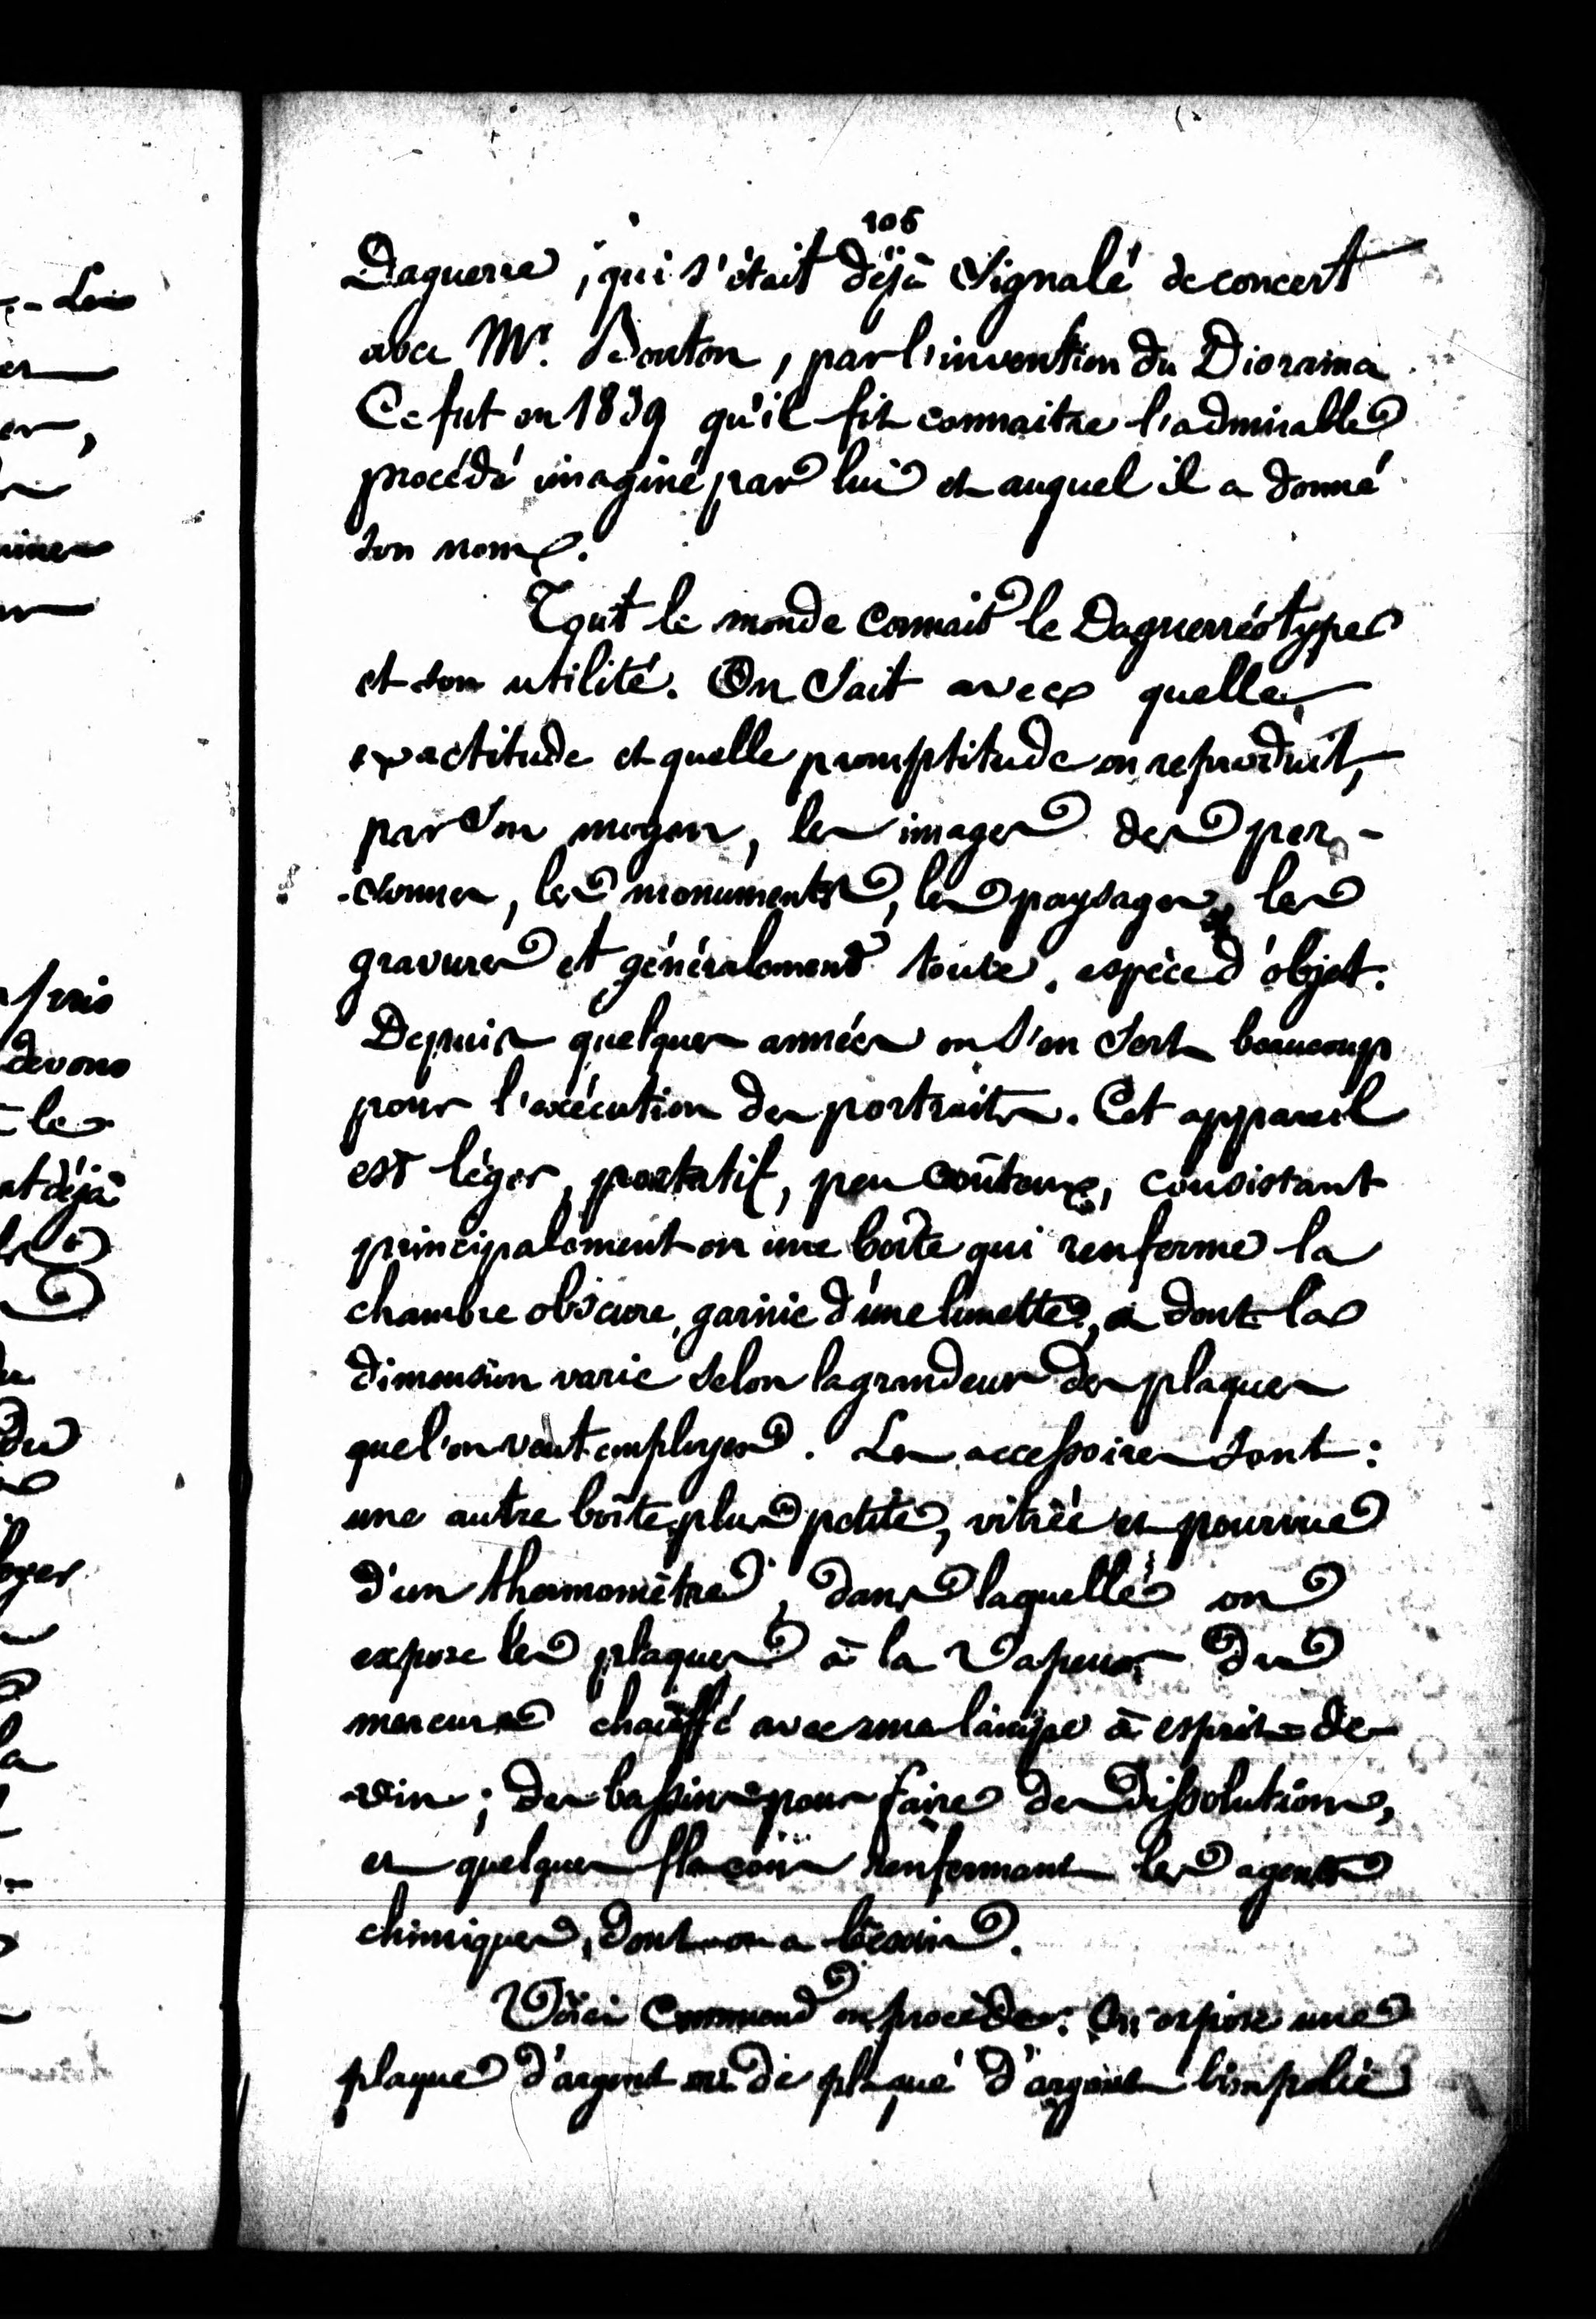 105
Daguerre, qui s'était déjà signalé de concert
avec Mr. Bouton, par l'invention du Diorama
Ce fut en 1839 qu'il fit connaitre l'admirable
procédé imaginé par lui et auquel il a donné
son nom.
Tout le monde connait le Daguerréotype
et son utilité. On sait avec quelle
exactitude et quelle promptitude on reproduit,
par son moyen, les images des per-
-sonnes, les monuments, les paysages, les
gravures et généralement toute espèce d'objet.
Depuis quelques années on s'en sert beaucoup
pour l'exécution des portraits. Cet appareil
est léger, portatif, peu coûteux, consistant
principalement en une boîte qui renferme la
chambre obscure, garnie d'une lunette, et dont la
dimension varie selon la grandeur des plaques
que l'on veut employer. Les accessoires sont :
une autre boîte plus petite, vitrée et pourvue
d'un thermomètre, dans laquelle on
expose les plaques à la vapeur du
mercure chauffé avec une lampe à esprit-de-
vin ; des bassins pour faire des dissolutions,
et quelques flacons renfermant les agents
chimiques, dont on a besoin.
Voici comment on procède : On expose une
plaque d'argent ou de plaqué d'argent bien polie